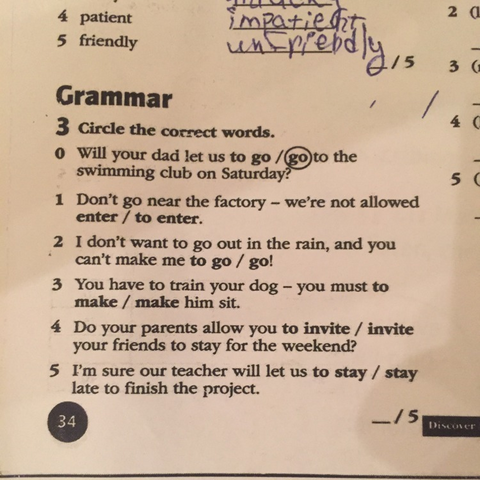 4 patient impatient
5 friendly unfriendly
/ 5
Grammar
3 Circle the correct words.
0 Will your dad let us to go / go to the
swimming club on Saturday?
1 Don't go near the factory – we're not allowed
enter / to enter.
2 I don't want to go out in the rain, and you
can't make me to go / go!
3 You have to train your dog – you must to
make / make him sit.
4 Do your parents allow you to invite / invite
your friends to stay for the weekend?
5 I'm sure our teacher will let us to stay / stay
late to finish the project.
_ / 5
34
Discover
2
3
4
5